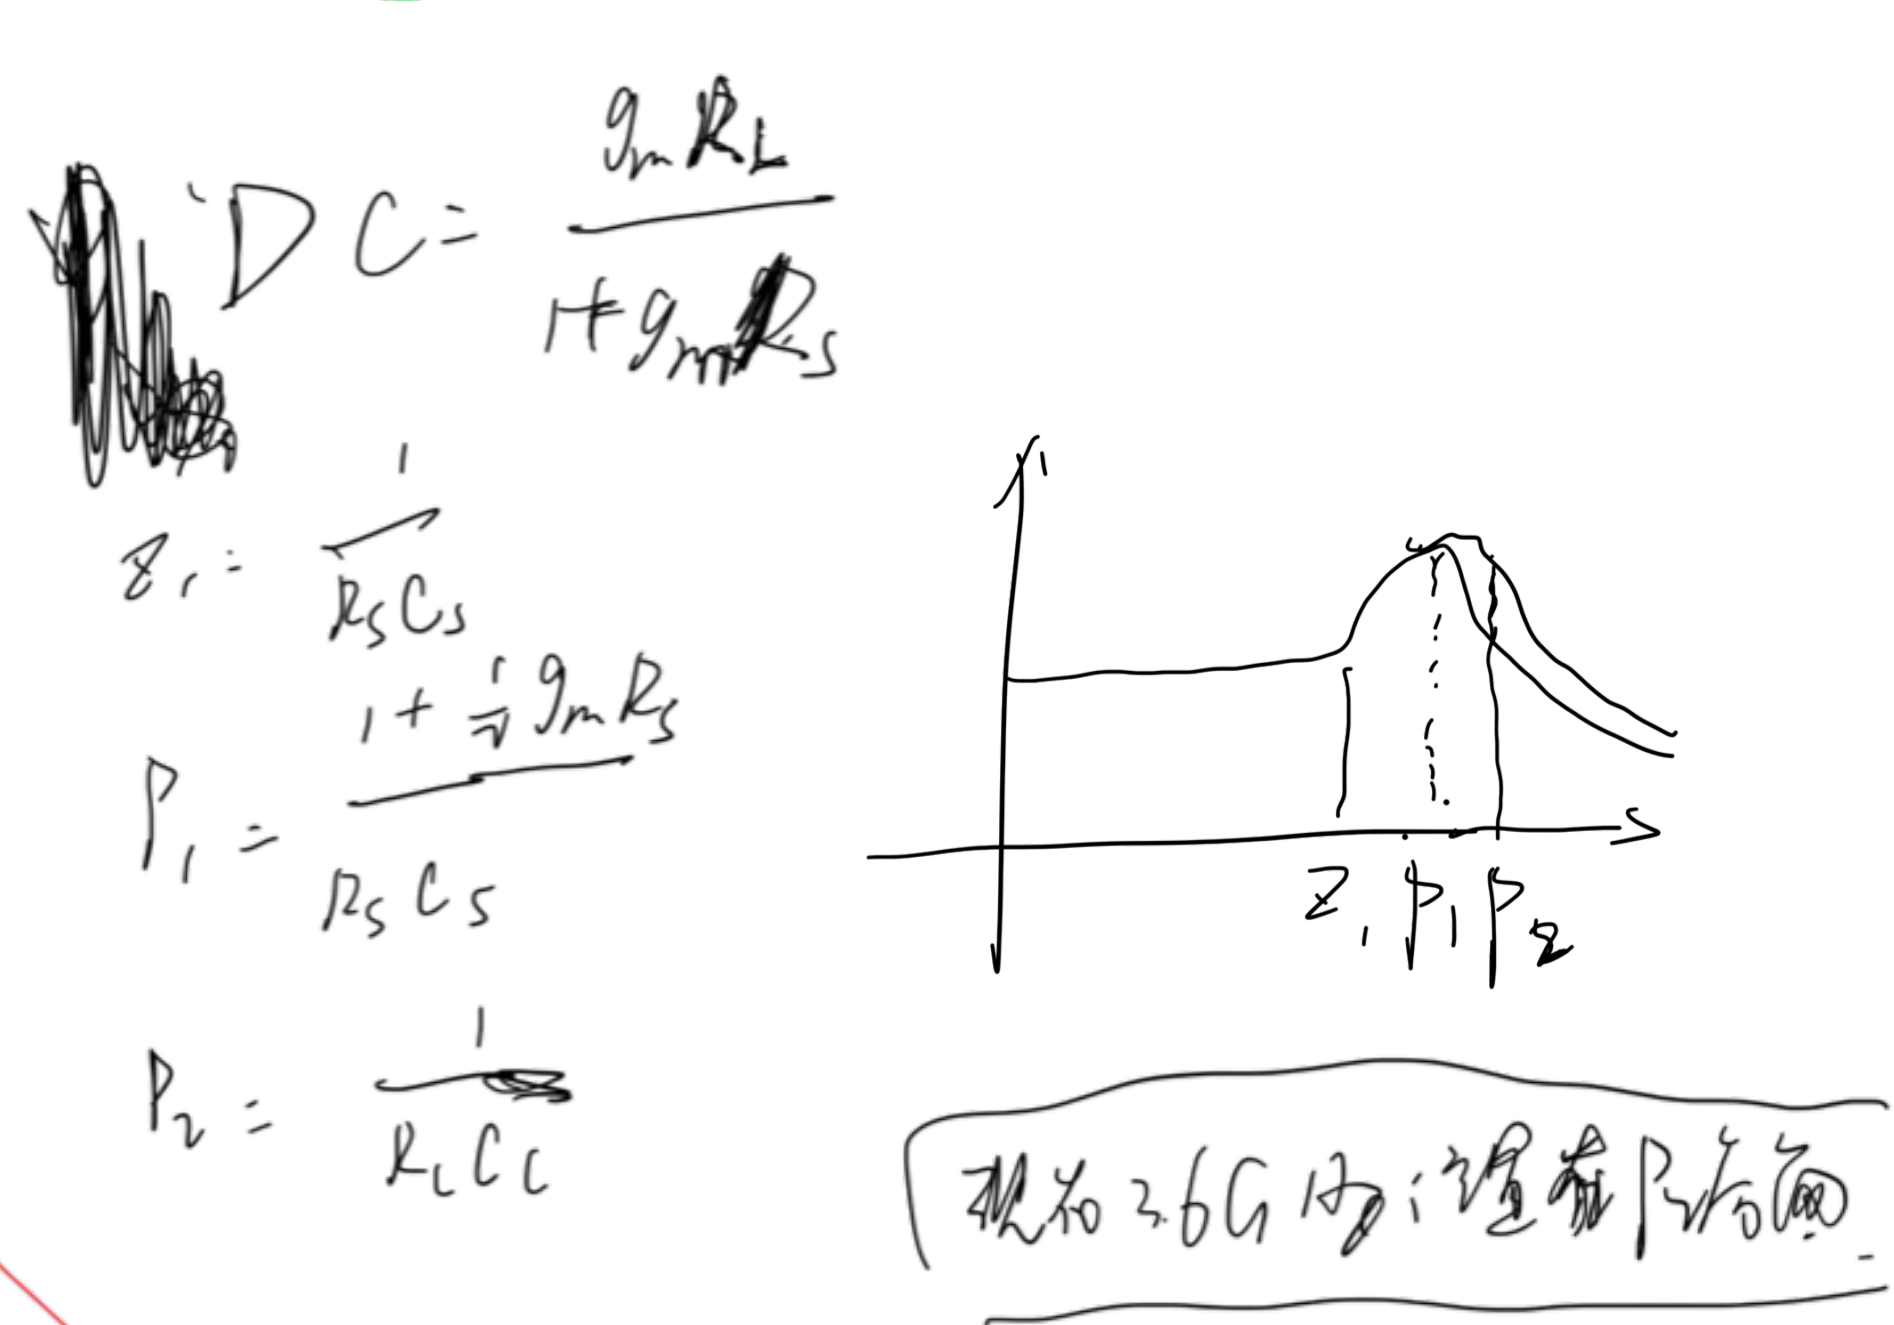 DC = gmRL / 1+gmRs
Z1 = 1 / RsCs
P1 = 1 + 1/2 gmRs / RsCs
P2 = 1 / RLCL
Z1 P1 P2
现在 3.6G 的 在P2后面